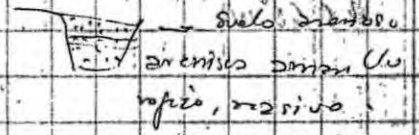 suelo arenoso
arenisca amarillo
rojizo, masivo.